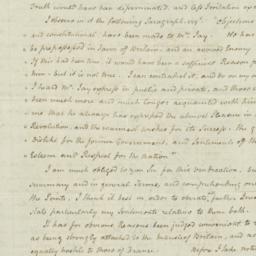 South would have been discriminated, and less Irritation
I observe in it the following Paragraph. viz. "Objections
and constitutional, have been made to Mr. Jay. He has
be prepossessed in favor of Britain, and an avowed Enemy
If this had been true, it would have been a sufficient Reason
him – but it is not true. I can contradict it, and do on my
I heard Mr. Jay express in public and private, and those
been much more and much longer acquainted with him
me that he always has expressed the utmost Pleasure in
Revolution, and the warmest wishes for its Success. the
Dislike for the former Government, and Sentiments of the
Esteem and Respect for the nation"
I am much obliged to you Sir for this vindication, but
summary and in general Terms, and comprehending only
the Points. I think it best in order to obviate further
state particularly my Sentiments relative to them both.
It has for obvious Reasons been judged convenient to
as being strongly attached to the Interests of Britain, and as
equally hostile to those of France. Before I take notice